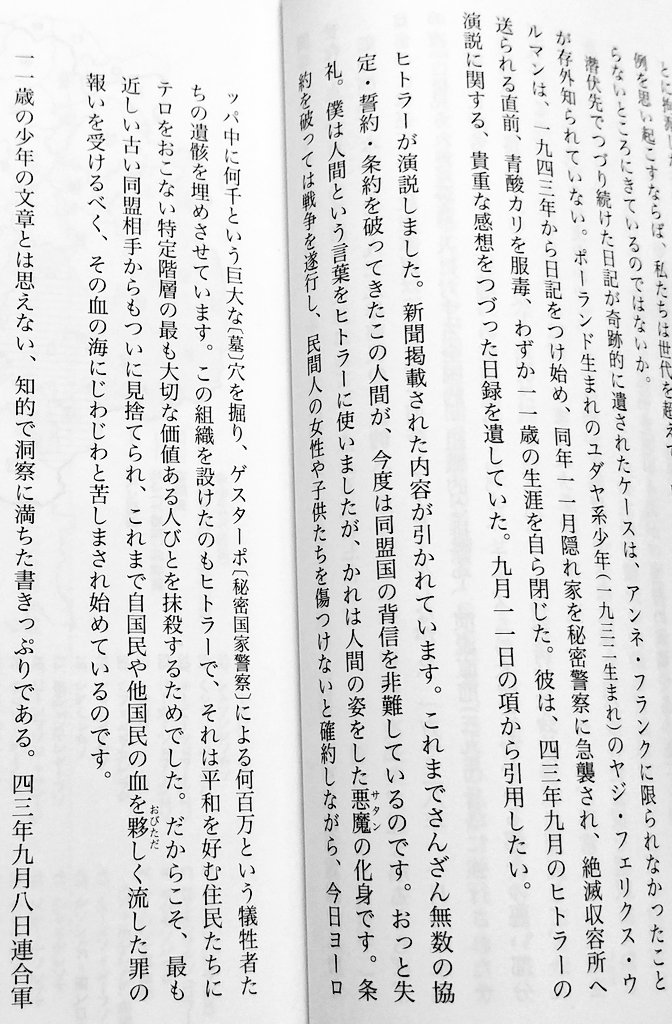 例を思い起こすならば、私たちは世代を超え
らないところにきているのではないか。
潜伏先でつづり続けた日記が奇跡的に遺されたケースは、アンネ・フランクに限られなかったこと
が存外知られていない。ポーランド生まれのユダヤ系少年(一九三二生まれ)のヤジ・フェリクス・ウ
ルマンは、一九四三年から日記をつけ始め、同年一一月隠れ家を秘密警察に急襲され、絶滅収容所へ
送られる直前、青酸カリを服毒、わずか一一歳の生涯を自ら閉じた。彼は、四三年九月のヒトラーの
演説に関する、貴重な感想をつづった日録を遺していた。九月一一日の項から引用したい。
ヒトラーが演説しました。新聞掲載された内容が引かれています。これまでさんざん無数の協
定・誓約・条約を破ってきたこの人間が、今度は同盟国の背信を非難しているのです。おっと失
礼。僕は人間という言葉をヒトラーに使いましたが、かれは人間の姿をした悪魔(サタン)の化身です。条
約を破っては戦争を遂行し、民間人の女性や子供たちを傷つけないと確約しながら、今日ヨーロ
ッパ中に何千という巨大な〔墓〕穴を掘り、ゲスターポ〔秘密国家警察〕による何百万という犠牲者た
ちの遺骸を埋めさせています。この組織を設けたのもヒトラーで、それは平和を好む住民たちに
テロをおこない特定階層の最も大切な価値ある人びとを抹殺するためでした。だからこそ、最も
近しい古い同盟相手からもついに見捨てられ、これまで自国民や他国民の血を夥(おびただ)しく流した罪の
報いを受けるべく、その血の海にじわじわと苦しまされ始めているのです。
一一歳の少年の文章とは思えない、知的で洞察に満ちた書きっぷりである。四三年九月八日連合軍